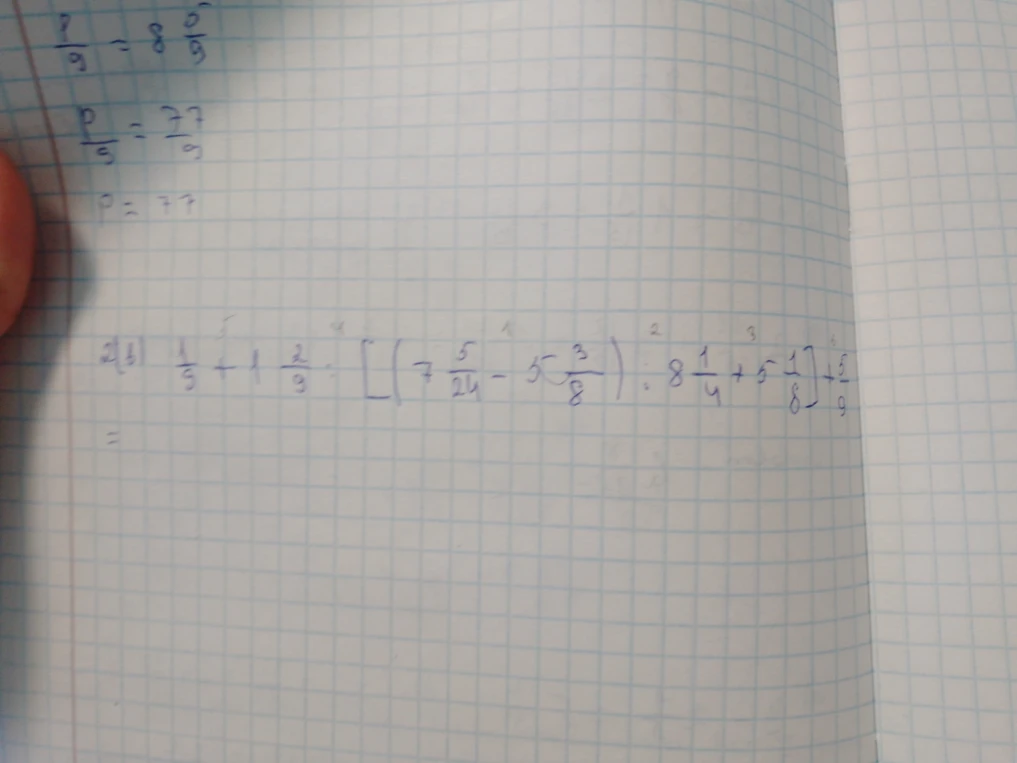 P/9 = 8 5/9
P/9 = 77/9
P = 77
5 4 1 2 3
2(b) 1/9 + 1 2/9 : [(7 5/24 - 5 3/8) : 8 1/4 + 5 1/8] + 5/9
=